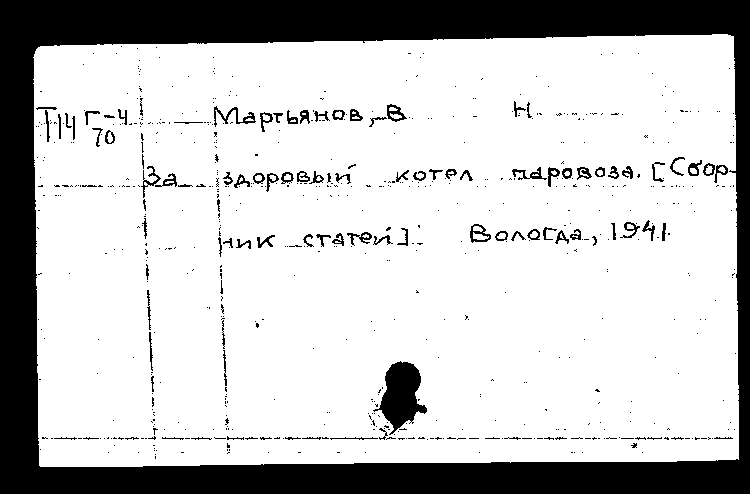 Т14 Г-4
70
Мартьянов, В Н
За здоровый котел паровоза. [Сбор-
ник статей]. Вологда, 1941.